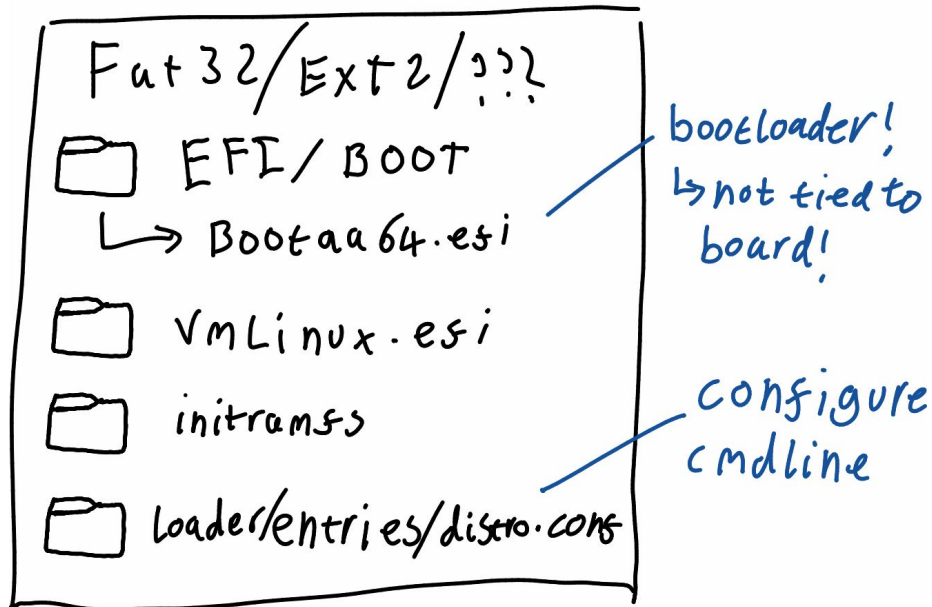 Fat32/Ext2/???
EFI/BOOT
↳ Bootaa64.efi
VmLinux.efi
initramfs
Loader/entries/distro.conf
bootloader!
↳ not tied to
board!
configure
cmdline